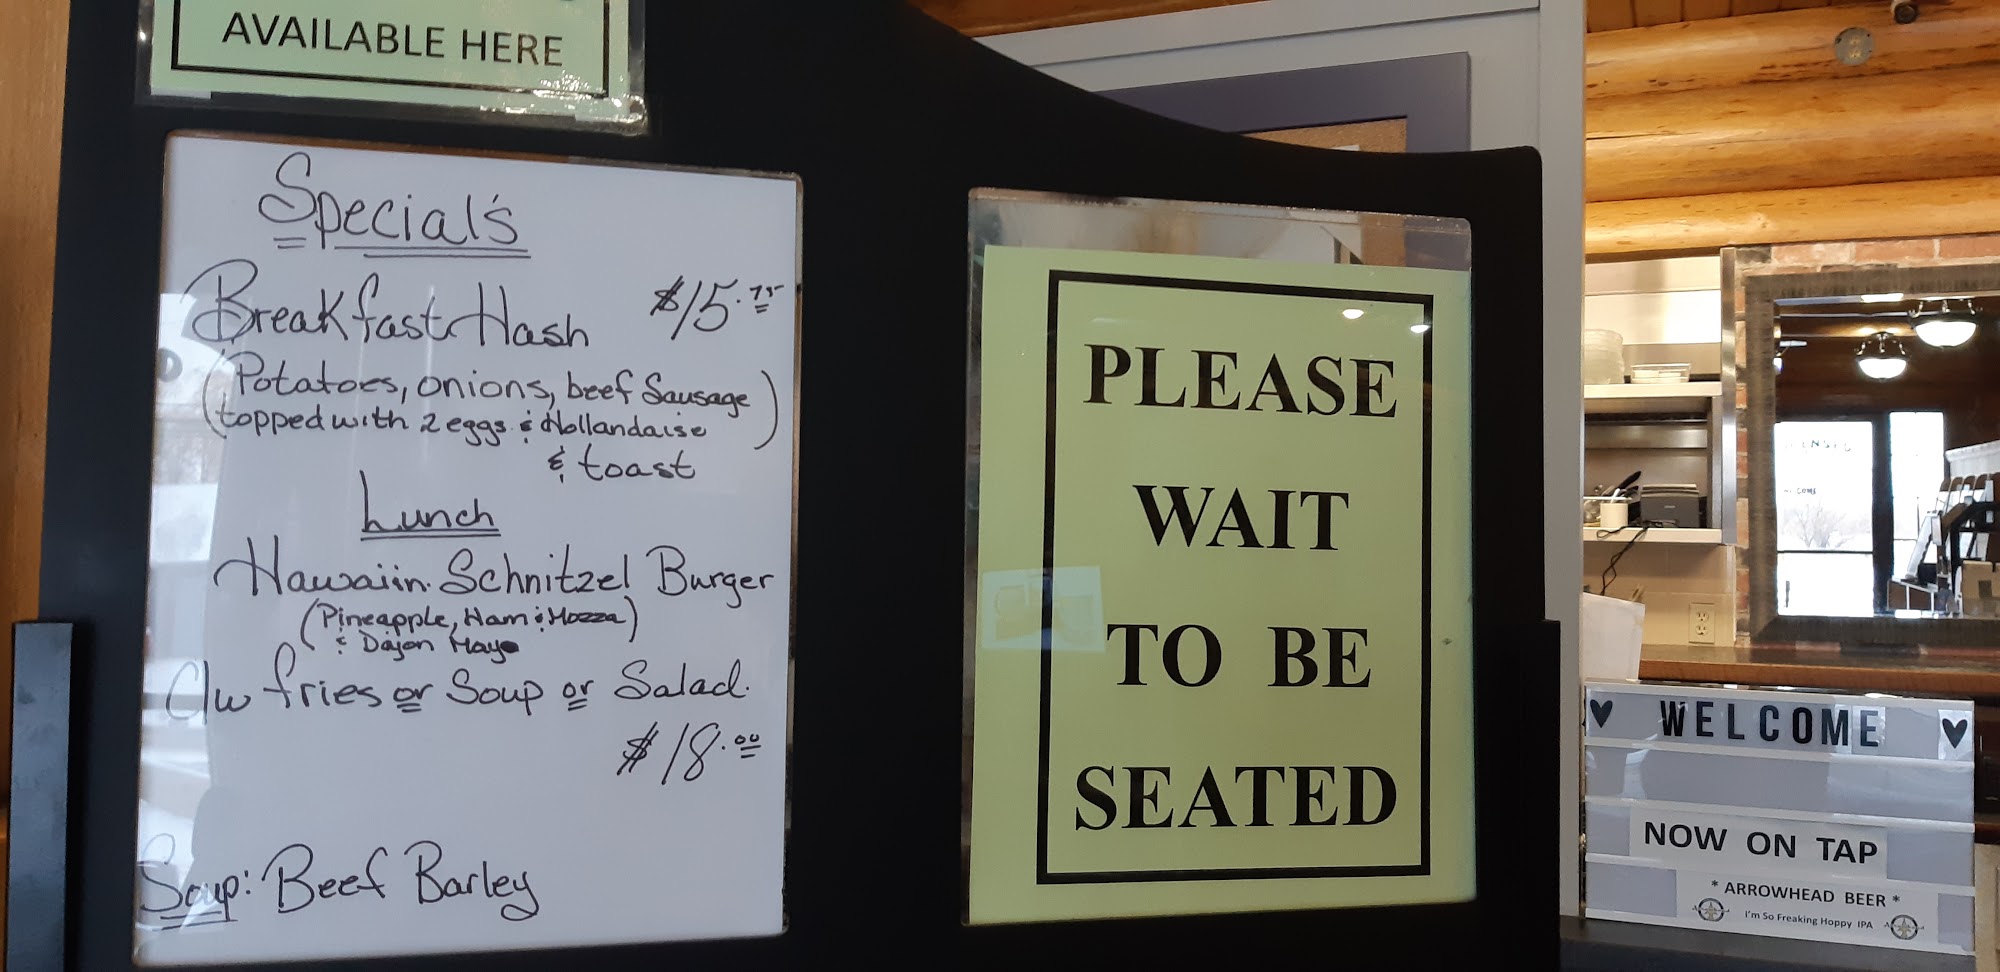 AVAILABLE HERE
Special's
Breakfast Hash $15.75
(Potatoes, onions, beef Sausage
topped with 2 eggs & Hollandaise)
& toast
Lunch
Hawaiin Schnitzel Burger
(Pineapple, Ham & Mozza)
& Dajon Mayo
C/w fries or Soup or Salad.
$18.00
Soup: Beef Barley
PLEASE
WAIT
TO BE
SEATED
WELCOME
NOW ON TAP
* ARROWHEAD BEER *
I'm So Freaking Hoppy IPA